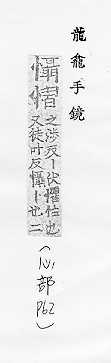 龍龕手鏡
懾慴
之涉反丨伏懼怯也
又徒叶反懾丨也二
(心部 P62)